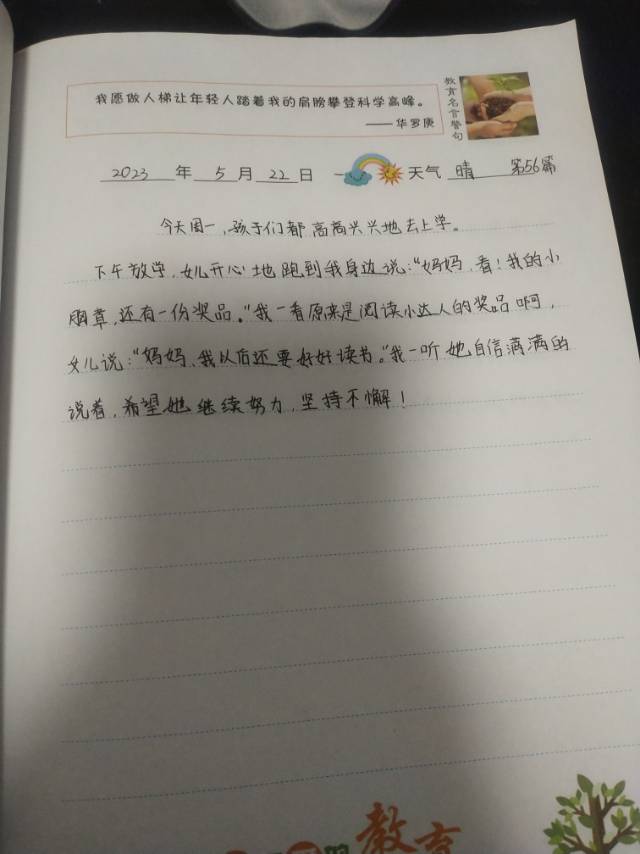 我愿做人梯让年轻人踏着我的肩膀攀登科学高峰。
——华罗庚
教育名言警句
2023 年 5 月 22 日 天气 晴 第56篇
今天周一,孩子们都高高兴兴地去上学。
下午放学,女儿开心地跑到我身边说:“妈妈,看!我的小
胸章,还有一份奖品。”我一看原来是阅读小达人的奖品啊,
女儿说:“妈妈、我以后还要好好读书。”我一听她自信满满的
说着,希望她继续努力,坚持不懈!
教育